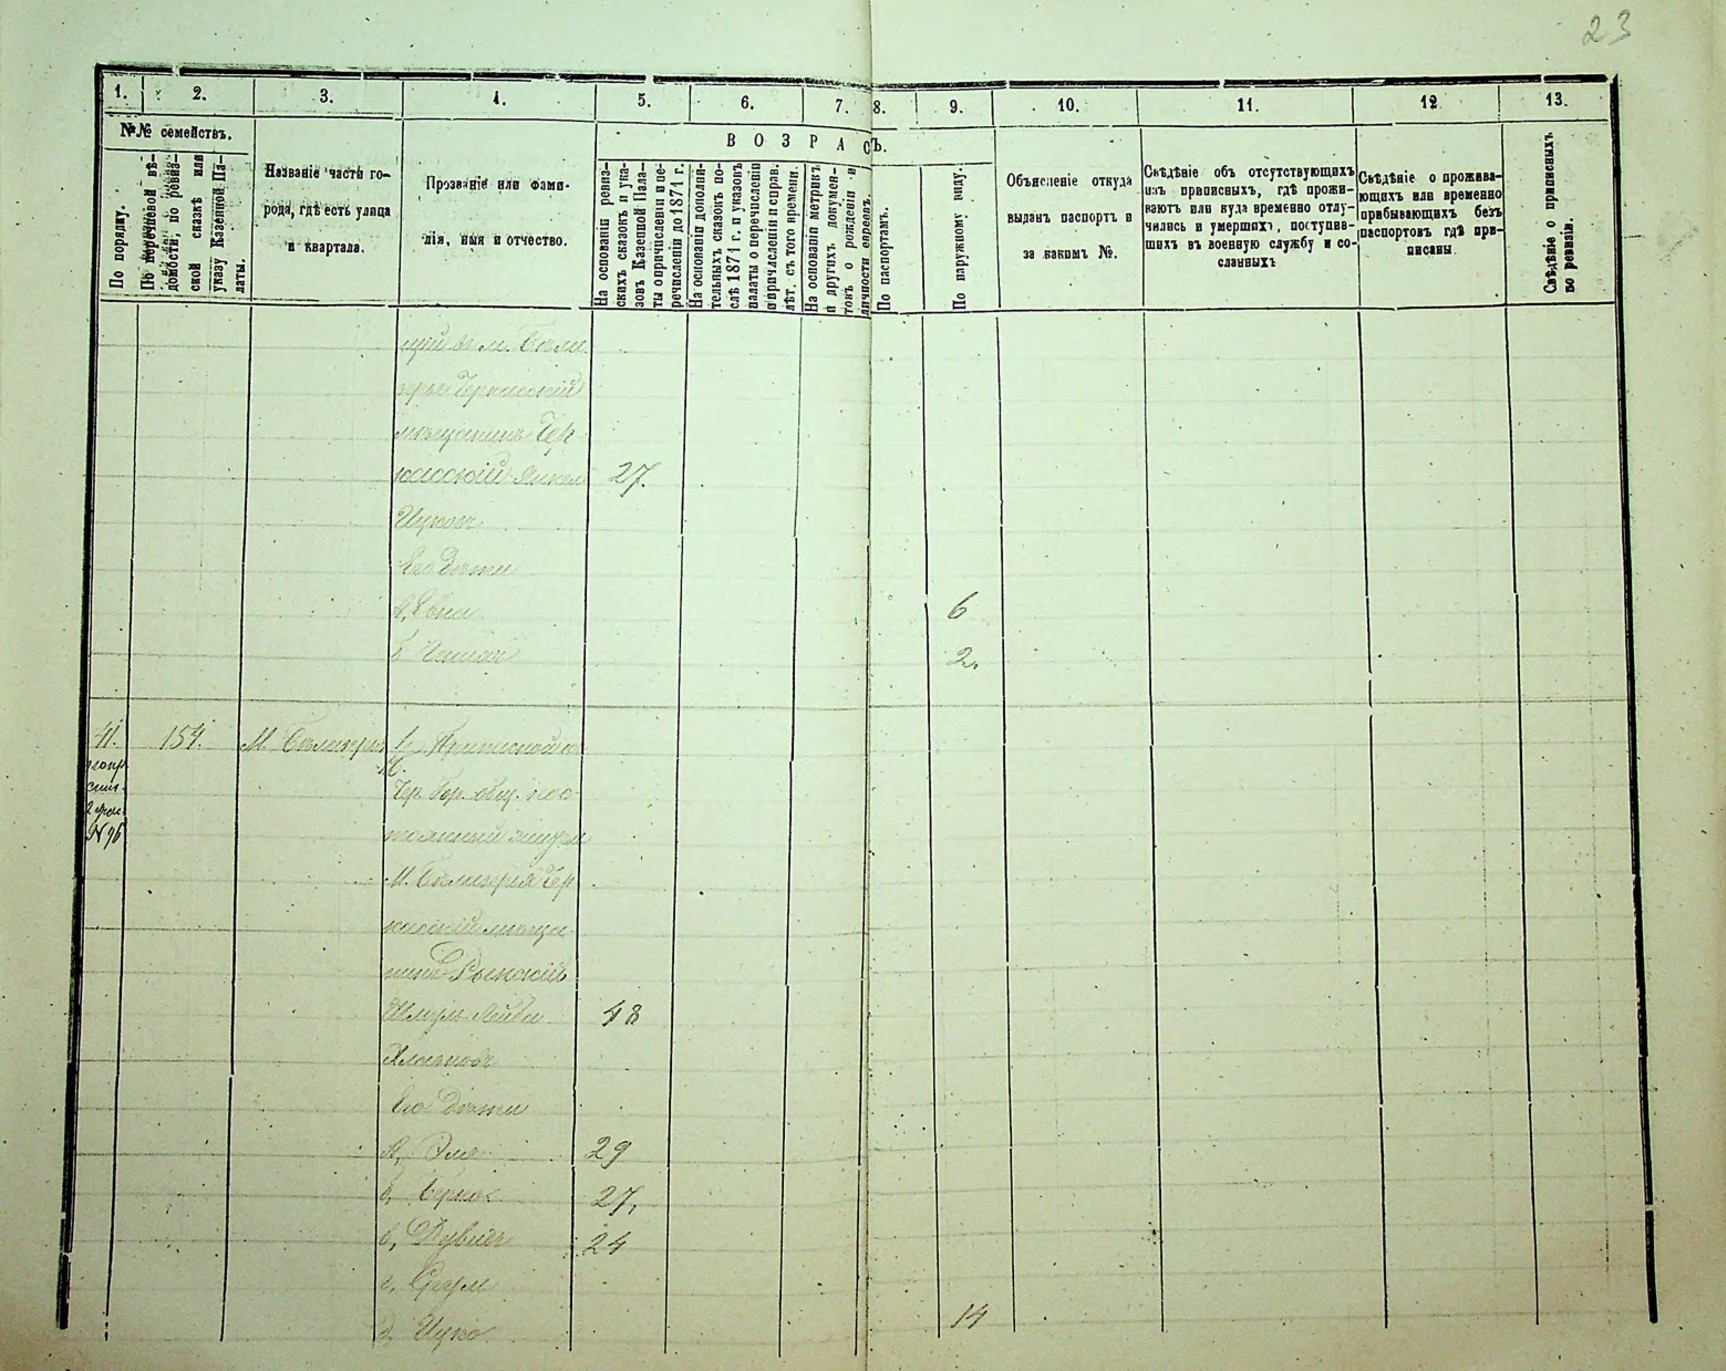 23
1. 2. 3. 4. 5. 6. 7. 8. 9. 10. 11. 12 13.
№№ семействъ.
По порядку.
По перечневой вѣ-
домости, по ревиз-
ской сказкѣ или
указу Казенной Па-
латы.
Названіе части го-
рода, гдѣ есть улица
и квартала.
Прозваніе или фами-
лія, имя и отчество.
ВОЗРАСЪ.
На основаніи ревиз-
скихъ сказокъ и ука-
зовъ Казенной Пала-
ты о причисленіи и пе-
речисленіи до 1871 г.
На основаніи дополни-
тельныхъ сказокъ по-
слѣ 1871 г. и указовъ
палаты о перечисленіи
и причисленіи и справ.
лѣт. съ того времени.
На основаніи метрикъ
и другихъ докумен-
товъ о рожденіи и
личности евреевъ.
По паспортамъ.
По наружному виду.
Объясненіе откуда
выданъ паспортъ и
за какимъ №.
Свѣдѣніе объ отсутствующихъ
изъ приписныхъ, гдѣ прожи-
ваютъ или куда временно отлу-
чились и умершихъ, поступив-
шихъ въ военную службу и со-
сланныхъ
Свѣдѣніе о прожива-
ющихъ или временно
прибывающихъ безъ
паспортовъ гдѣ при-
писаны
Свѣдѣніе о приписныхъ
по ревизіи.
щій въ м. Бѣло
зерье Черкасскій
мѣщанинъ Чер
касскій Янкель 27.
Ицковъ
Его дѣти
а, 6
б 2.
41. 154. М. Бѣлозерье 1 Приписной къ
Чер. Гор. общ. пос-
тоянный жител
М. Бѣлозерья Чер
касскій мѣща-
нинъ Рынскій
Шмуль Лейба 48
Его дѣти
а, Эля 29
б, Берко 27,
в, Дувидъ 24
г, Срул
д, Ицко 14
№ 96